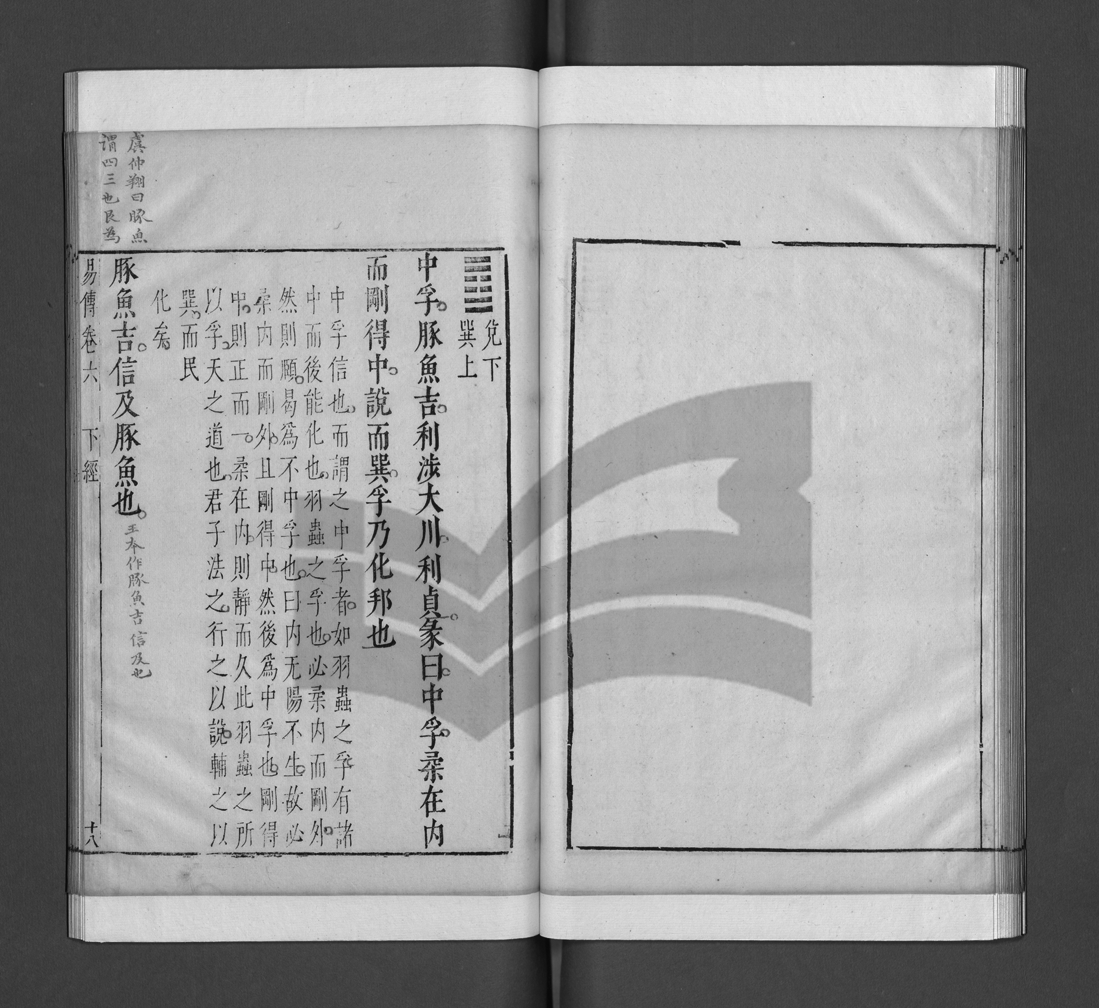 兌下
巽上
中孚豚魚吉利涉大川利貞彖曰中孚柔在内
而剛得中說而巽孚乃化邦也
中孚信也而謂之中孚者如羽蟲之孚有諸
中而後能化也羽蟲之孚也必柔内而剛外
然則頤曷爲不中孚也曰内无陽不生故必
柔内而剛外且剛得中然後爲中孚也剛得
中則正而一柔在内則靜而久此羽蟲之所
以孚天之道也君子法之行之以說輔之以
巽而民
化矣
豚魚吉信及豚魚也
王本作豚魚吉信及也
易傳卷六 下經 十八
虞仲翔曰豚魚
謂四三也艮為